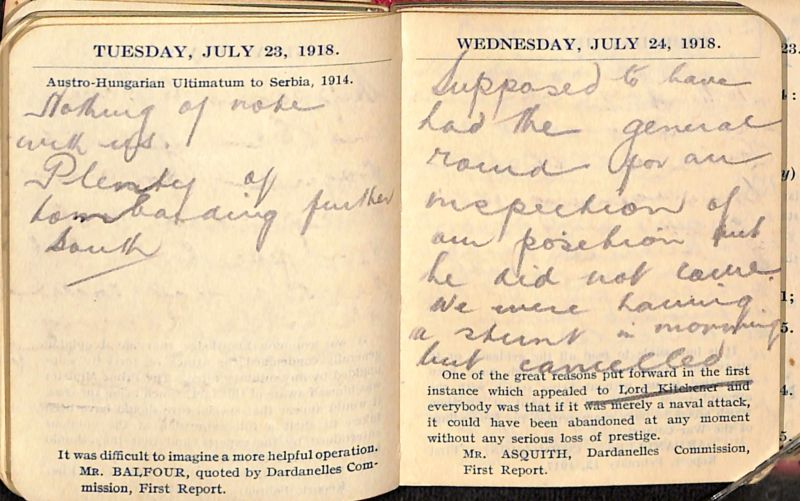 TUESDAY, JULY 23, 1918.
Austro-Hungarian Ultimatum to Serbia, 1914.
Nothing of note
with us.
Plenty of
bombarding further
South
It was difficult to imagine a more helpful operation.
MR. BALFOUR, quoted by Dardanelles Com-
mission, First Report.
WEDNESDAY, JULY 24, 1918.
Supposed to have
had the general
round for an
inspection of
our position but
he did not come.
We were having
a stunt in morning
but cancelled
One of the great reasons put forward in the first
instance which appealed to Lord Kitchener and
everybody was that if it was merely a naval attack,
it could have been abandoned at any moment
without any serious loss of prestige.
MR. ASQUITH, Dardanelles Commission,
First Report.
23.